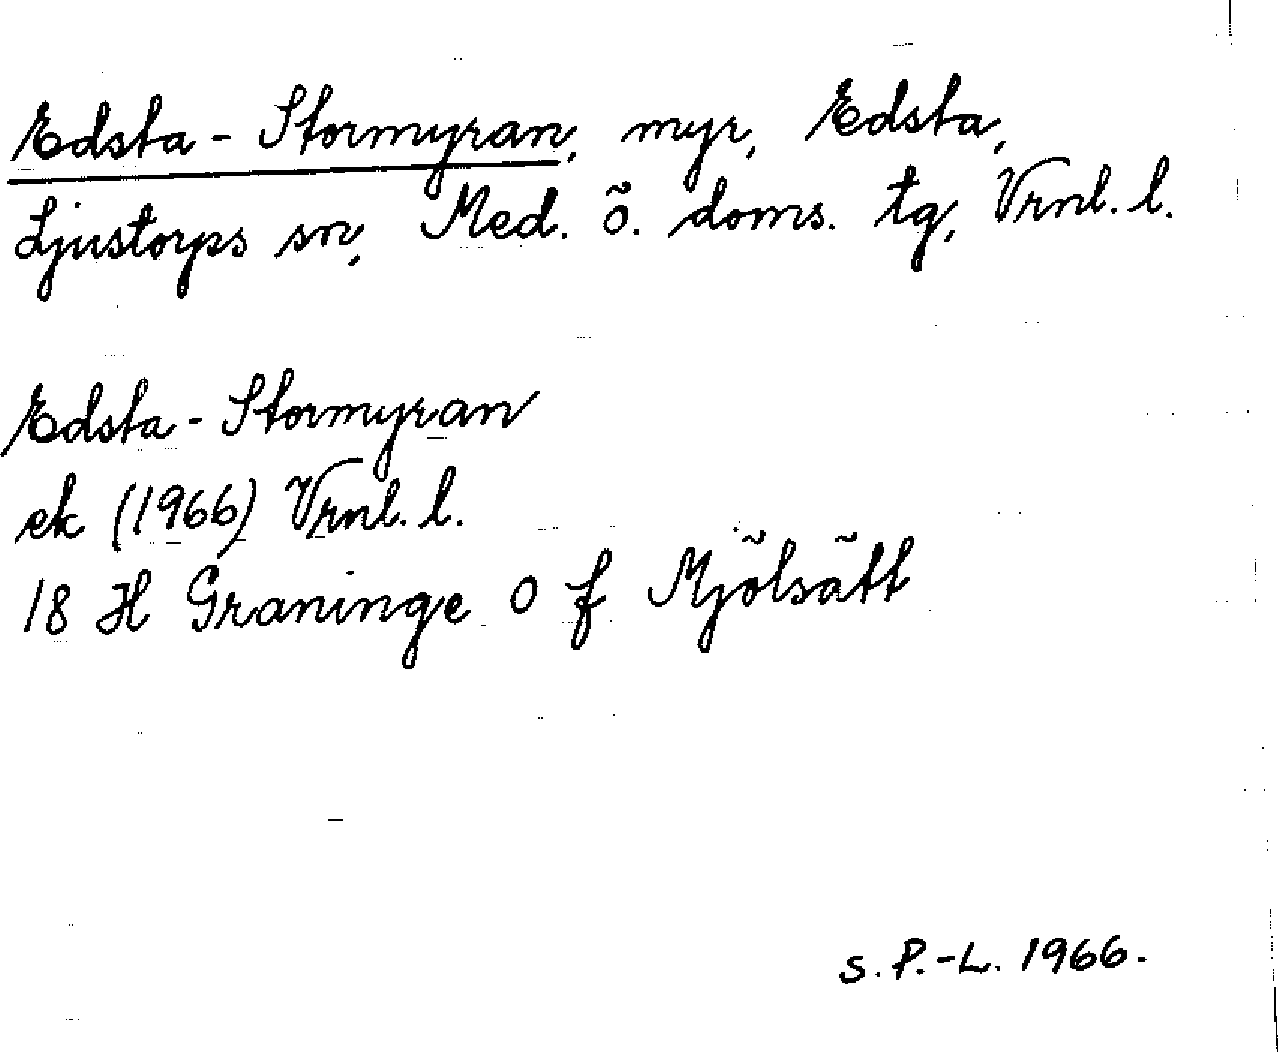 Edsta-Stormyran, myr, Edsta,
Ljustorps sn, Med. ö. doms. tg, Vrnl. l.
Edsta-Stormyran
ek (1966) Vrnl. l.
18 H Graninge O f Mjölsätt
S. P.-L. 1966.